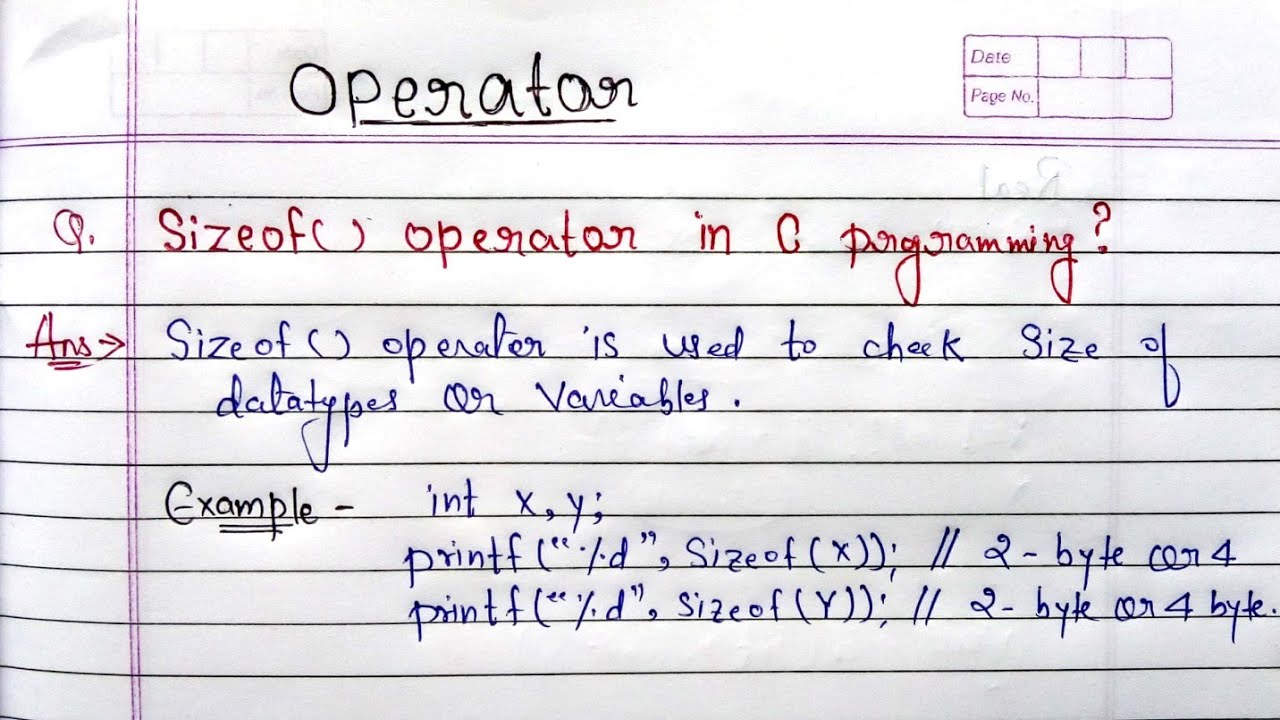 Operator
Date
Page No.
Real
Q. Sizeof() operator in C programming?
Ans→ Sizeof() operator is used to check Size of
datatypes or Variables.
Example - int x, y;
printf("%d", Sizeof(x)); // 2-byte or 4
printf("%d", Sizeof(Y)); // 2-byte or 4 byte.